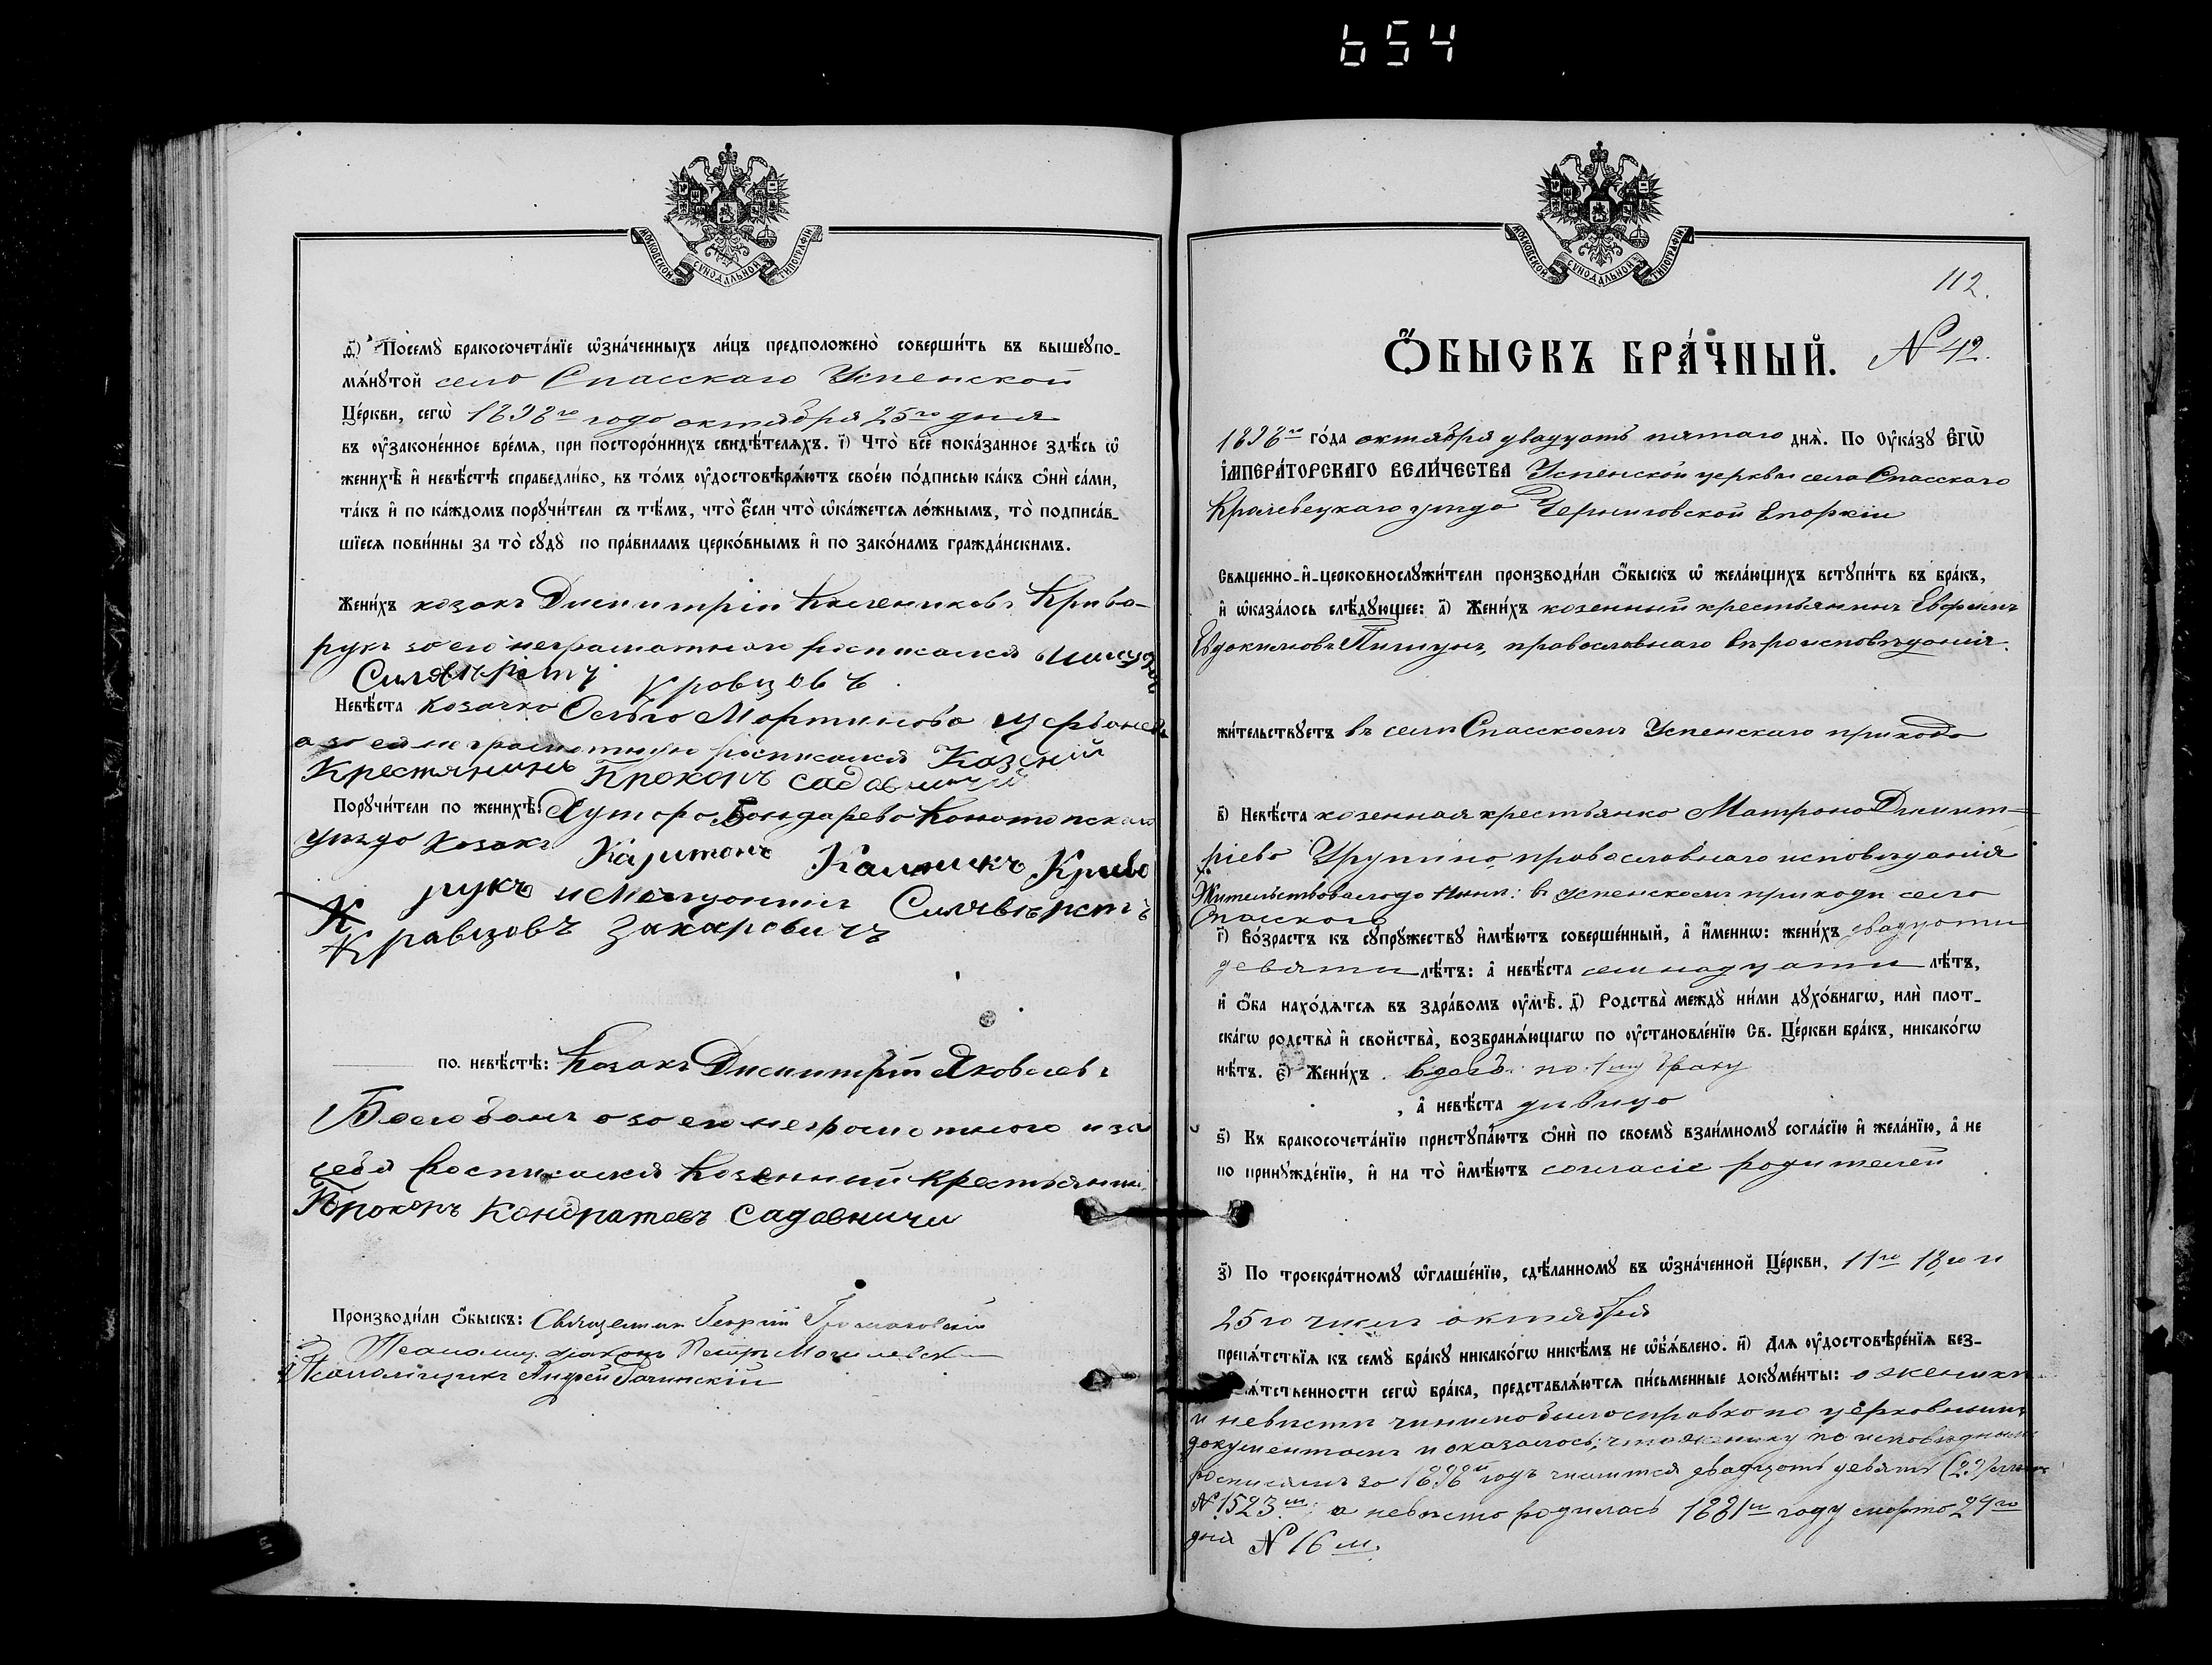 654
МОСКОВСКОЙ СѴНОДАЛЬНОЙ ТИПОГРАФІИ
ѳ҃) Посемꙋ̀ бракосочета́нїе ѡ҆зна́ченныхъ ли́цъ предположено̀ соверши́ть въ вышеꙋпо-
мѧ́нꙋтой село Спасскаго Успенской
Це́ркви, сегѡ̀ 1898го года октября 25го дня
въ ᲂу҆зако́ненное вре́мѧ, при посторо́ннихъ свидѣ́телѧхъ. і҃) Что̀ всѐ пока́занное здѣ́сь ѡ҆
женихѣ̀ и҆ невѣ́стѣ справедли́во, въ то́мъ ᲂу҆достовѣрѧ́ютъ свое́ю по́дписью ка́къ ѻ҆нѝ са́ми,
та́къ и҆ по ка́ждомъ порꙋчи́тели съ тѣ́мъ, что̀ є҆́сли что̀ ѡ҆ка́жетсѧ ло́жнымъ, то̀ подписа́в-
шїесѧ пови́нны за то̀ сꙋдꙋ̀ по пра́виламъ церко́внымъ и҆ по зако́намъ гражда́нскимъ.
Жени́хъ козакъ Димитрій Криво-
рукъ за его неграмотнаго росписался
Силвѣрстъ Кровцовъ.
Невѣ́ста козачка Ольга Мартинова
а за ея неграмотную росписался Казеній
Крестянинъ Прокопъ садовничій
Порꙋчи́тели по женихѣ̀: Хутора Бондарево Конотопскаго
уѣзда козакъ Харитонъ Калникъ Криво
рукъ и Силвѣрстъ
К
Кравцовъ Захаровичъ
по невѣ́стѣ: Козакъ Димитрій Яковлевъ
а за его неграмотнаго и за
себя росписался козенный крестьянинъ
Прокопъ Кондратовъ садовничи
Производи́ли ѻ҆́быскъ: Священникъ Георгій
Псаломщ. діаконъ Петръ
Псаломщикъ Андрей
МОСКОВСКОЙ СѴНОДАЛЬНОЙ ТИПОГРАФІИ
112.
Ѻ҆́БЫСКЪ БРА́ЧНЫЙ. № 42.
1898го го́да октября двадцать пятаго днѧ̀. По ᲂу҆ка́зꙋ Е҆ГѠ̀
І҆МПЕРА́ТОРСКАГО ВЕЛИ́ЧЕСТВА Успенской церкви села Спасскаго
Кролевецкаго уѣзда Черниговской Епархіи
Свѧщенно-и҆-церковнослꙋжи́тели производи́ли ѻ҆́быскъ ѡ҆ жела́ющихъ встꙋпи́ть въ бра́къ,
и҆ ѡ҆каза́лось слѣ́дꙋющее: а҃) Жени́хъ козенный крестьянинъ Ефримъ
Евдокимовъ Пишунъ, православнаго вѣроисповѣданія.
жи́тельствꙋетъ въ селѣ Спасскомъ Успенскаго прихода
в҃) Невѣ́ста козенная крестьянка Матрона Димит-
ріева православнаго исповѣданія
Жительствовала до нынѣ: въ Успенскомъ приходѣ село
Спасского
г҃) Во́зрастъ къ сꙋпрꙋжествꙋ и҆мѣ́ютъ соверше́нный, а҆ и҆́меннѡ: жени́хъ двадцати
девяти лѣ́тъ: а҆ невѣ́ста семнадцати лѣ́тъ,
и҆ ѻ҆́ба нахо́дѧтсѧ въ здра́вомъ ᲂу҆мѣ̀. д҃) Родства̀ междꙋ̀ ни́ми дꙋхо́внагѡ, илѝ плот-
ска́гѡ родства̀ и҆ сво́йства̀, возбранѧ́ющагѡ по ᲂу҆становле́нїю Св. Це́ркви бра́къ, никако́гѡ
нѣ́тъ. є҃) Жени́хъ вдовъ по 1му браку
, а҆ невѣ́ста дѣвица
ѕ҃) Къ бракосочета́нїю пристꙋпа́ютъ ѻ҆нѝ по своемꙋ̀ взаи́мномꙋ согла́сїю и҆ жела́нїю, а҆ не
по принꙋжде́нїю, и҆ на то̀ и҆мѣ́ютъ согласіе родителей
з҃) По троекра́тномꙋ ѡ҆глаше́нїю, сдѣ́ланномꙋ въ ѡ҆зна́ченной Це́ркви, 11го 18го и
25го чиселъ октября
препѧ́тствїѧ къ семꙋ̀ бра́кꙋ никако́гѡ никѣ́мъ не ѡ҆б̾ѧ́влено. и҃) Длѧ ᲂу҆достовѣре́нїѧ без-
препѧ́тственности сегѡ̀ бра́ка, представлѧ́ютсѧ пи́сьменные докꙋме́нты: о женихѣ
и невѣсти чинимо было справка по церковнымъ
документамъ и оказалось, что жениху по исповѣднымъ
росписямъ за 1898й годъ числится двадцать девять (29) лѣтъ
№ 1523мъ; а невѣста родилась 1881го году марта 29го
дня № 16м.